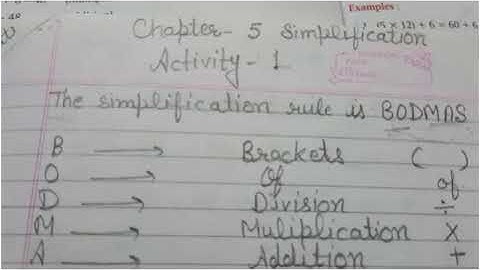 Examples :
(5 x 12) ÷ 6 = 60 ÷ 6
Chapter- 5 Simplification
Activity - 1
The simplification rule is BODMAS
B → Brackets ( )
O → Of of
D → Division ÷
M → Muliplication x
A → Addition +